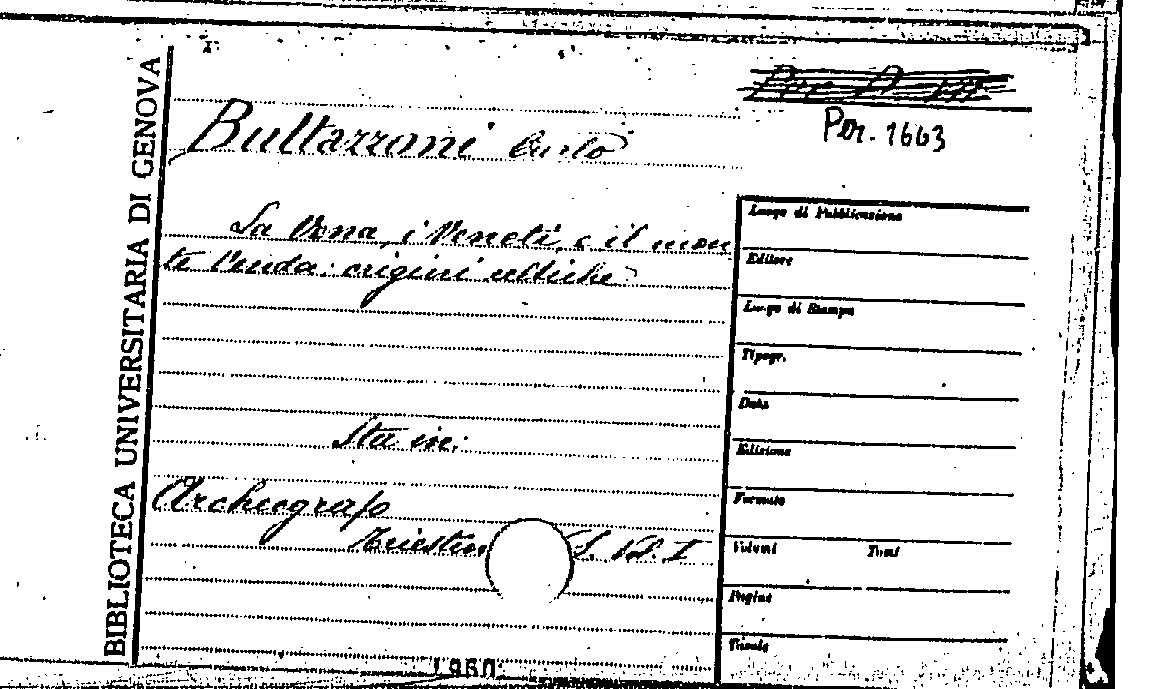 BIBLIOTECA UNIVERSITARIA DI GENOVA
Per. 1663
Buttazzoni Carlo
La Vena, i Veneti, e il mon
te Venda: origini celtiche
Sta in:
Archeografo
Triestin S. Vol. I
Luogo di Pubblicazione
Editore
Luogo di Stampa
Tipogr.
Data
Edizione
Formato
Volumi Tomi
Pagine
1960